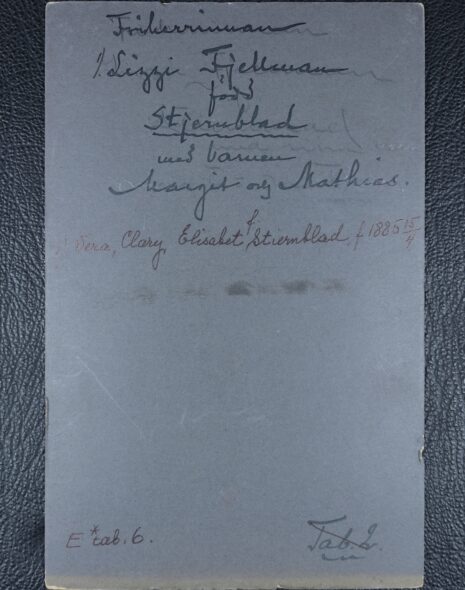 Friherrinnan
1/ Lizzi Fjellman
född
Stjernblad
med barnen
Margit och Mathias.
1/ Vera, Clary, Elisabet, f. Stiernblad, f 1885 15/4
E* tab. 6.
Tab. 2.